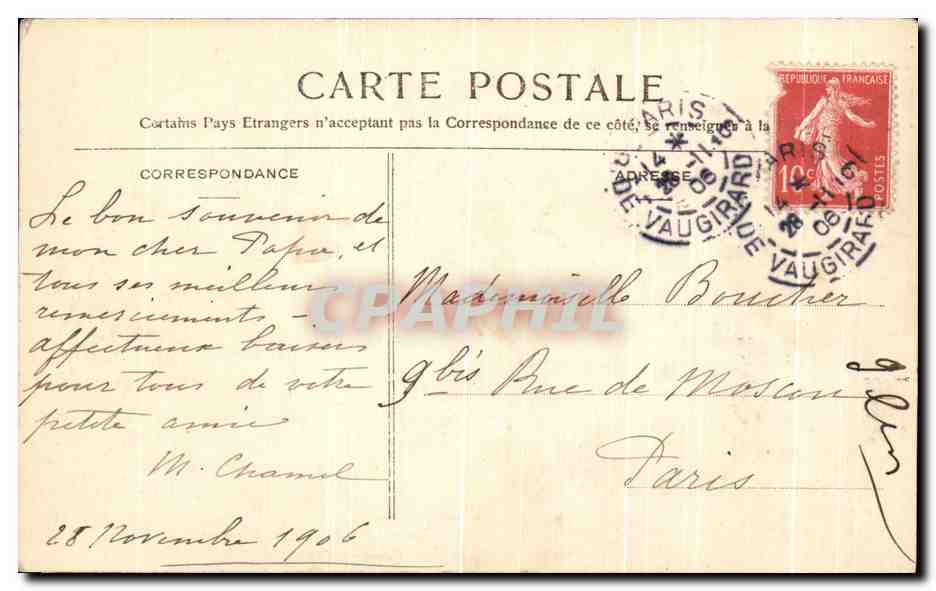 CARTE POSTALE
Certains Pays Etrangers n'acceptant pas la Correspondance de ce côté, se renseigner à la
CORRESPONDANCE
ADRESSE
Le bon souvenir de
mon cher Papa, et
tous ses meilleurs
remerciements -
affectueux baisers
pour tous de votre
petite amie
M. Chamel
28 Novembre 1906
Mademoiselle Boucher
9 bis Rue de Moscou
Paris
REPUBLIQUE FRANÇAISE
10c
POSTES
PARIS
14
28 -11
06
R. DE VAUGIRARD
PARIS
14
28 -11
06
R. DE VAUGIRARD
CPAPHIL